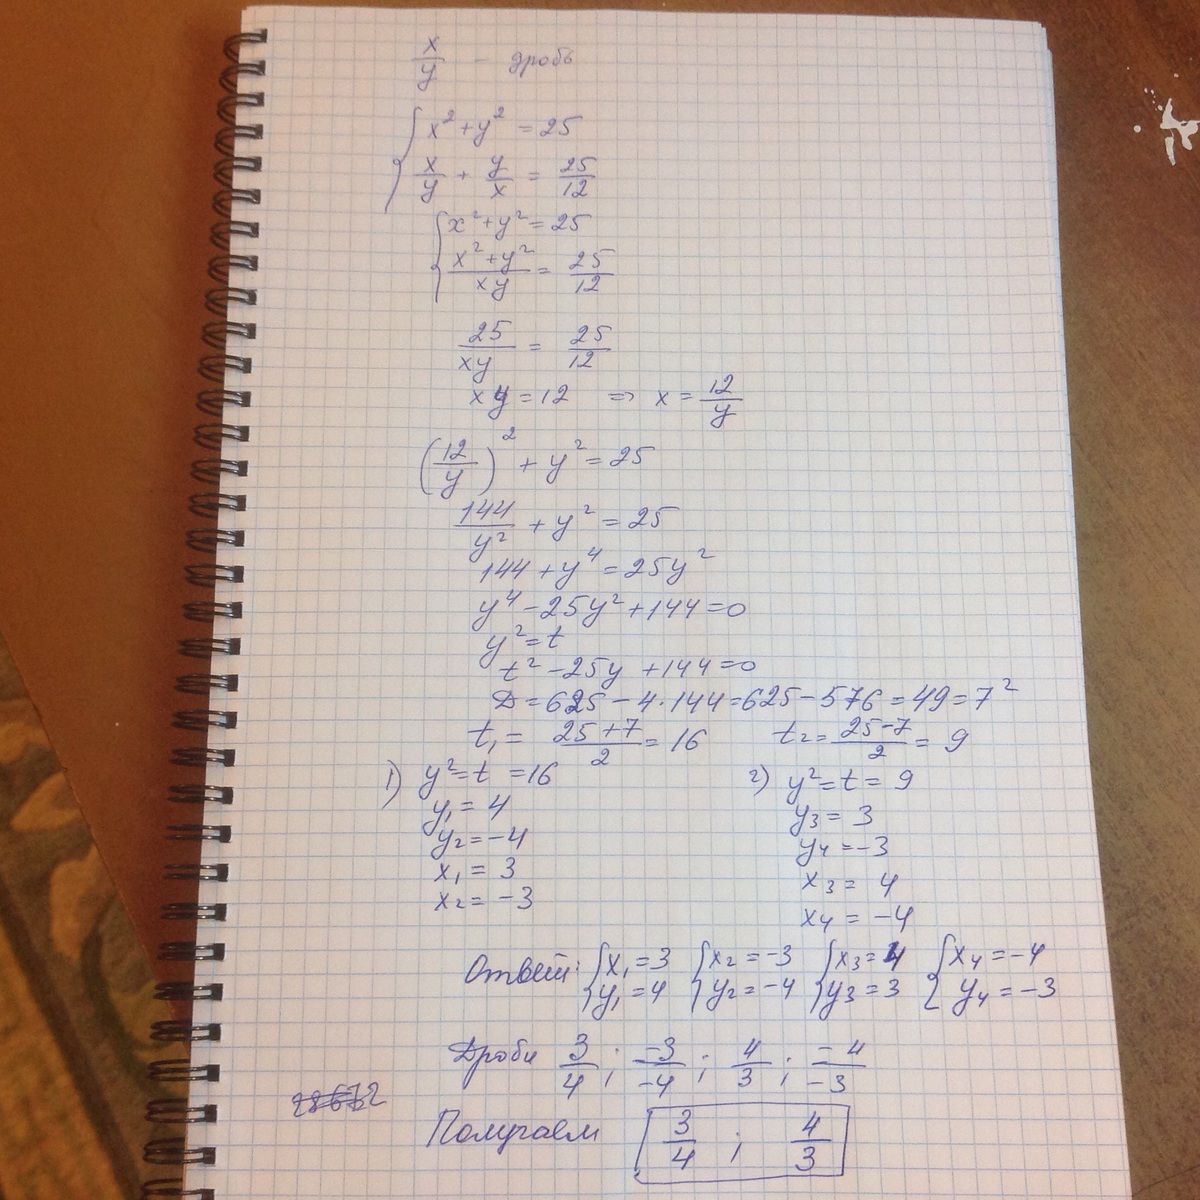 x/y - дробь
{ x² + y² = 25
x/y + y/x = 25/12
{ x² + y² = 25
(x² + y²)/xy = 25/12
25/xy = 25/12
xy = 12 => x = 12/y
(12/y)² + y² = 25
144/y² + y² = 25
144 + y⁴ = 25y²
y⁴ - 25y² + 144 = 0
y² = t
t² - 25y + 144 = 0
D = 625 - 4·144 = 625 - 576 = 49 = 7²
t₁ = (25+7)/2 = 16 t₂ = (25-7)/2 = 9
1) y² = t = 16
y₁ = 4
y₂ = -4
x₁ = 3
x₂ = -3
2) y² = t = 9
y₃ = 3
y₄ = -3
x₃ = 4
x₄ = -4
Ответ: { x₁ = 3 { x₂ = -3 { x₃ = 4 { x₄ = -4
y₁ = 4 y₂ = -4 y₃ = 3 y₄ = -3
Дроби 3/4 ; -3/-4 ; 4/3 ; -4/-3
Получаем 3/4 ; 4/3